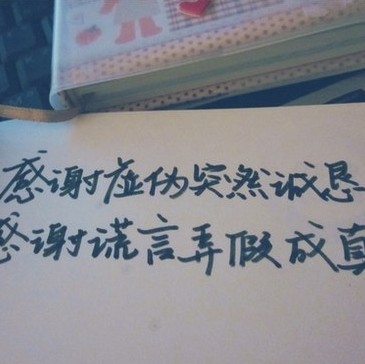 感谢虚伪突然诚恳
感谢谎言弄假成真